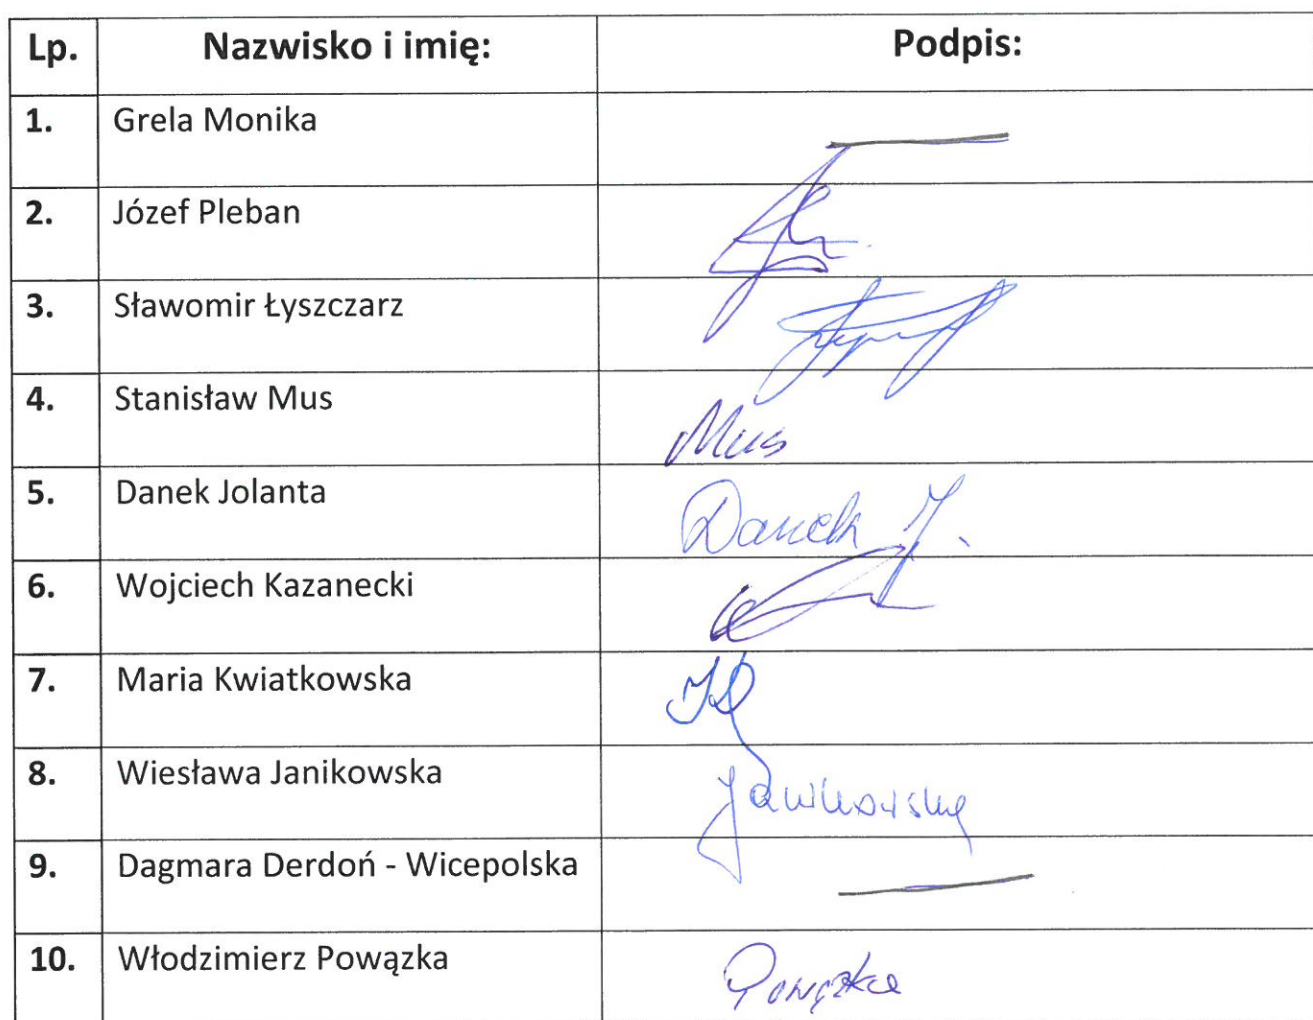 Lp. Nazwisko i imię: Podpis:
1. Grela Monika
2. Józef Pleban
3. Sławomir Łyszczarz
4. Stanisław Mus Mus
5. Danek Jolanta Danek J.
6. Wojciech Kazanecki
7. Maria Kwiatkowska
8. Wiesława Janikowska Janikowska
9. Dagmara Derdoń - Wicepolska
10. Włodzimierz Powązka Powązka